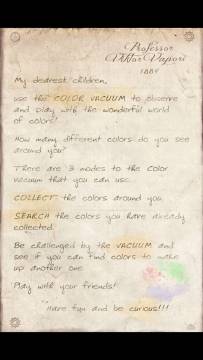 Professor
Viktor Vapori
1884
My dearest children,
use the COLOR VACUUM to observe
and play with the wonderful world
of colors!
How many different colors do you see
around you?
There are 3 modes to the color
vacuum that you can use.
COLLECT the colors around you.
SEARCH the colors you have already
collected.
Be challenged by the VACUUM and
see if you can find colors to make
up another one.
Play with your friends!
Have fun and be curious!!!